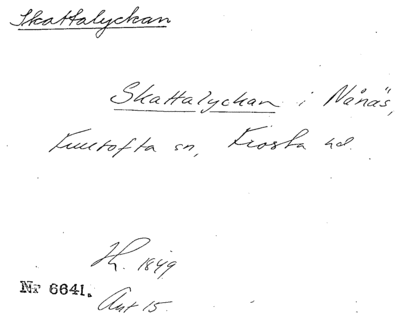 Skattalyckan
Skattalyckan i Nånäs,
Fulltofta sn, Frosta hd.
1849
Nr 6641.
Ant 15.